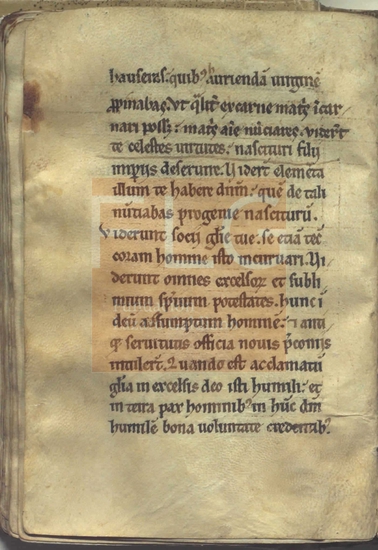 hauseras. quib⁹ auriendā uirginē
ꝓpinabas. Ut qlit̄ ex carne matͥs īcar
nari possꝫ: matͥ aīe nūciares. viderūt
te celestes uirtutes: nascituri filij
imperijs deseruire. Uiderūt elemēta
illum te habere dn̄m: quē de tali
nūtiabas progenie nasciturū.
Viderunt socij gl̄ie tue. se etiā tecū
coram homine isto incuruari. Ui
derunt omnes excelsor et subli
mium sp̄ium potestates. hunc i
deū assumptum hominē: ⁊ anti
que seruitutis officia nouis p̄conijs
intulert̄. Quando est acclamatū
gl̄ia in excelsis deo isti humili: et
in terra pax hominib⁹ in hūc dn̄m
humilē bona voluntate credentib⁹.